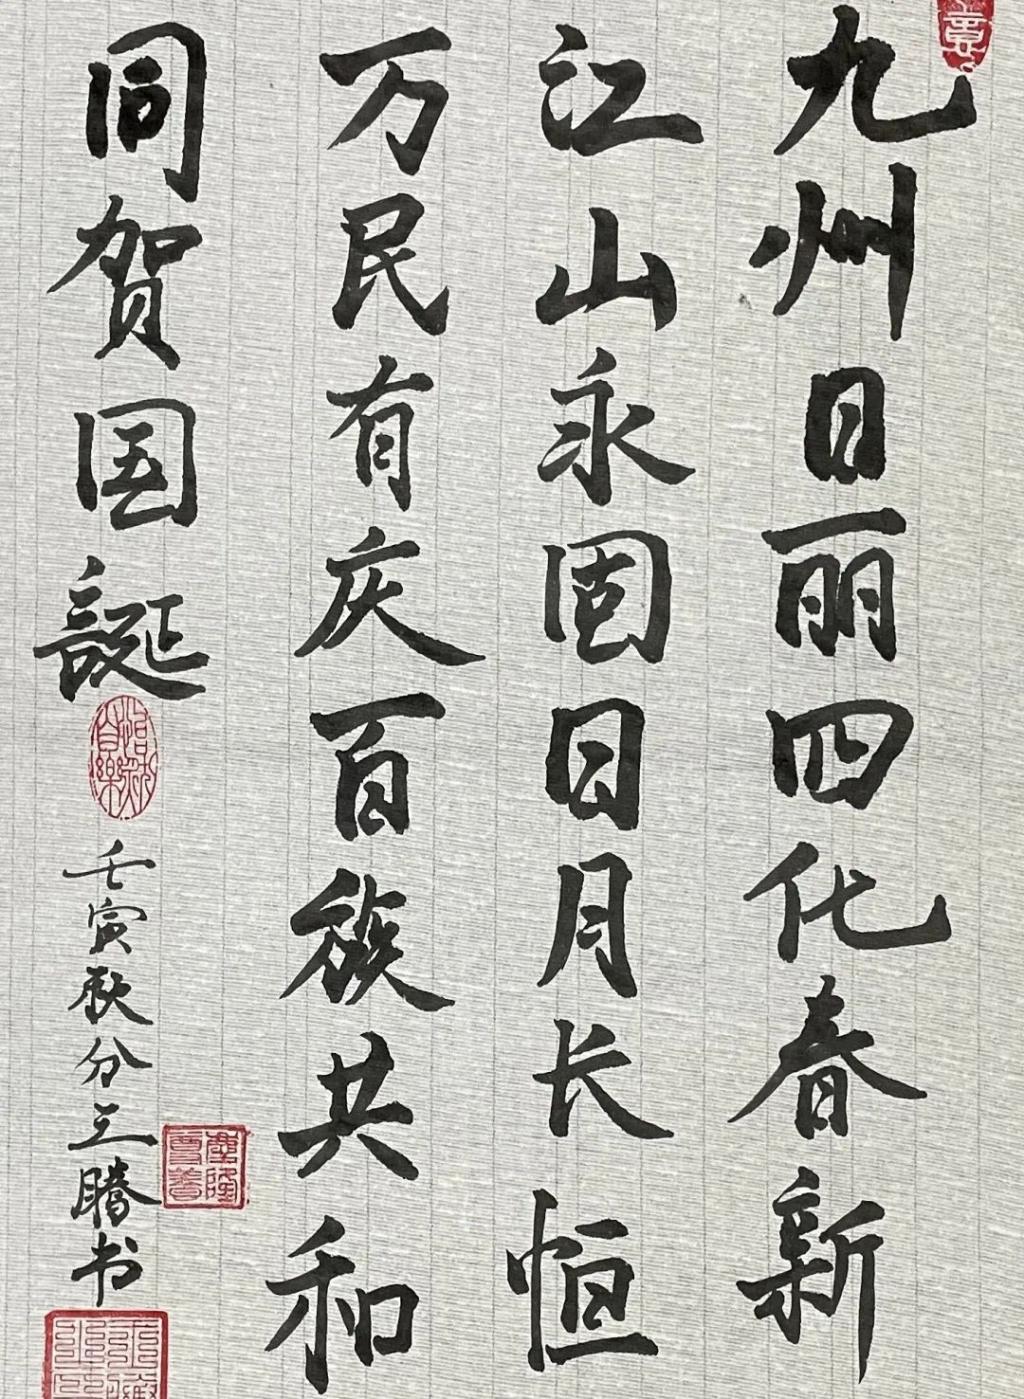 九州日丽四化春新
江山永固日月长恒
万民有庆百族共和
同贺国誕
壬寅秋分王腾书